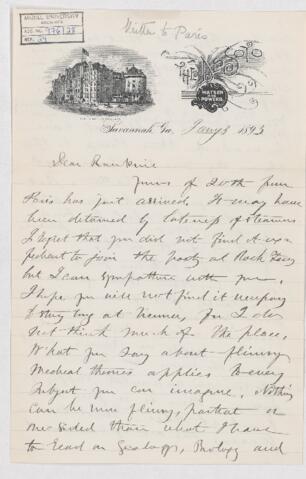 McGILL UNIVERSITY
ARCHIVES
ACC. NO. 976/28
REF. 29
Written to Paris
THE DE SOTO
WATSON & POWERS
Savannah, Ga. Jany 3 1893
Dear Rankine
Yours of 20th from
Paris has just arrived. It may have
been detained by lateness of steamers
I regret that you did not find it ex-
pedient to join the party at
but I can sympathise with you.
I hope you will not find it necessary
to stay long at for I do
not think much of the place.
What you say about flimsy
Medical theories applies to every
subject you can imagine. Nothing
can be more flimsy, partial or
one sided than what I have
to read on Geology, Biology and